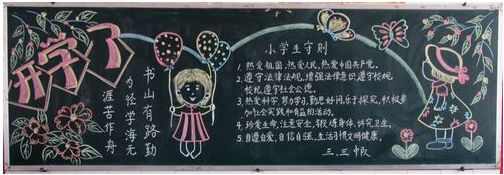 开学了
书山有路勤
为径学海无
涯苦作舟
小学生守则
1. 热爱祖国,热爱人民,热爱中国共产党。
2. 遵守法律法规,增强法律意识,遵守校规,
校纪,遵守社会公德。
3. 热爱科学,努力学习,勤思好问,乐于探究,积极参
加社会实践和有益的活动。
4. 珍爱生命,注意安全,锻炼身体,讲究卫生。
5. 自尊自爱,自信自强,生活习惯文明健康。
三.三中队